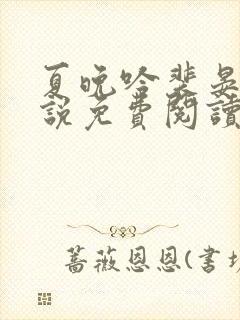 夏晚吟裴晏
說免費閱讀
薔薇恩恩(書坊